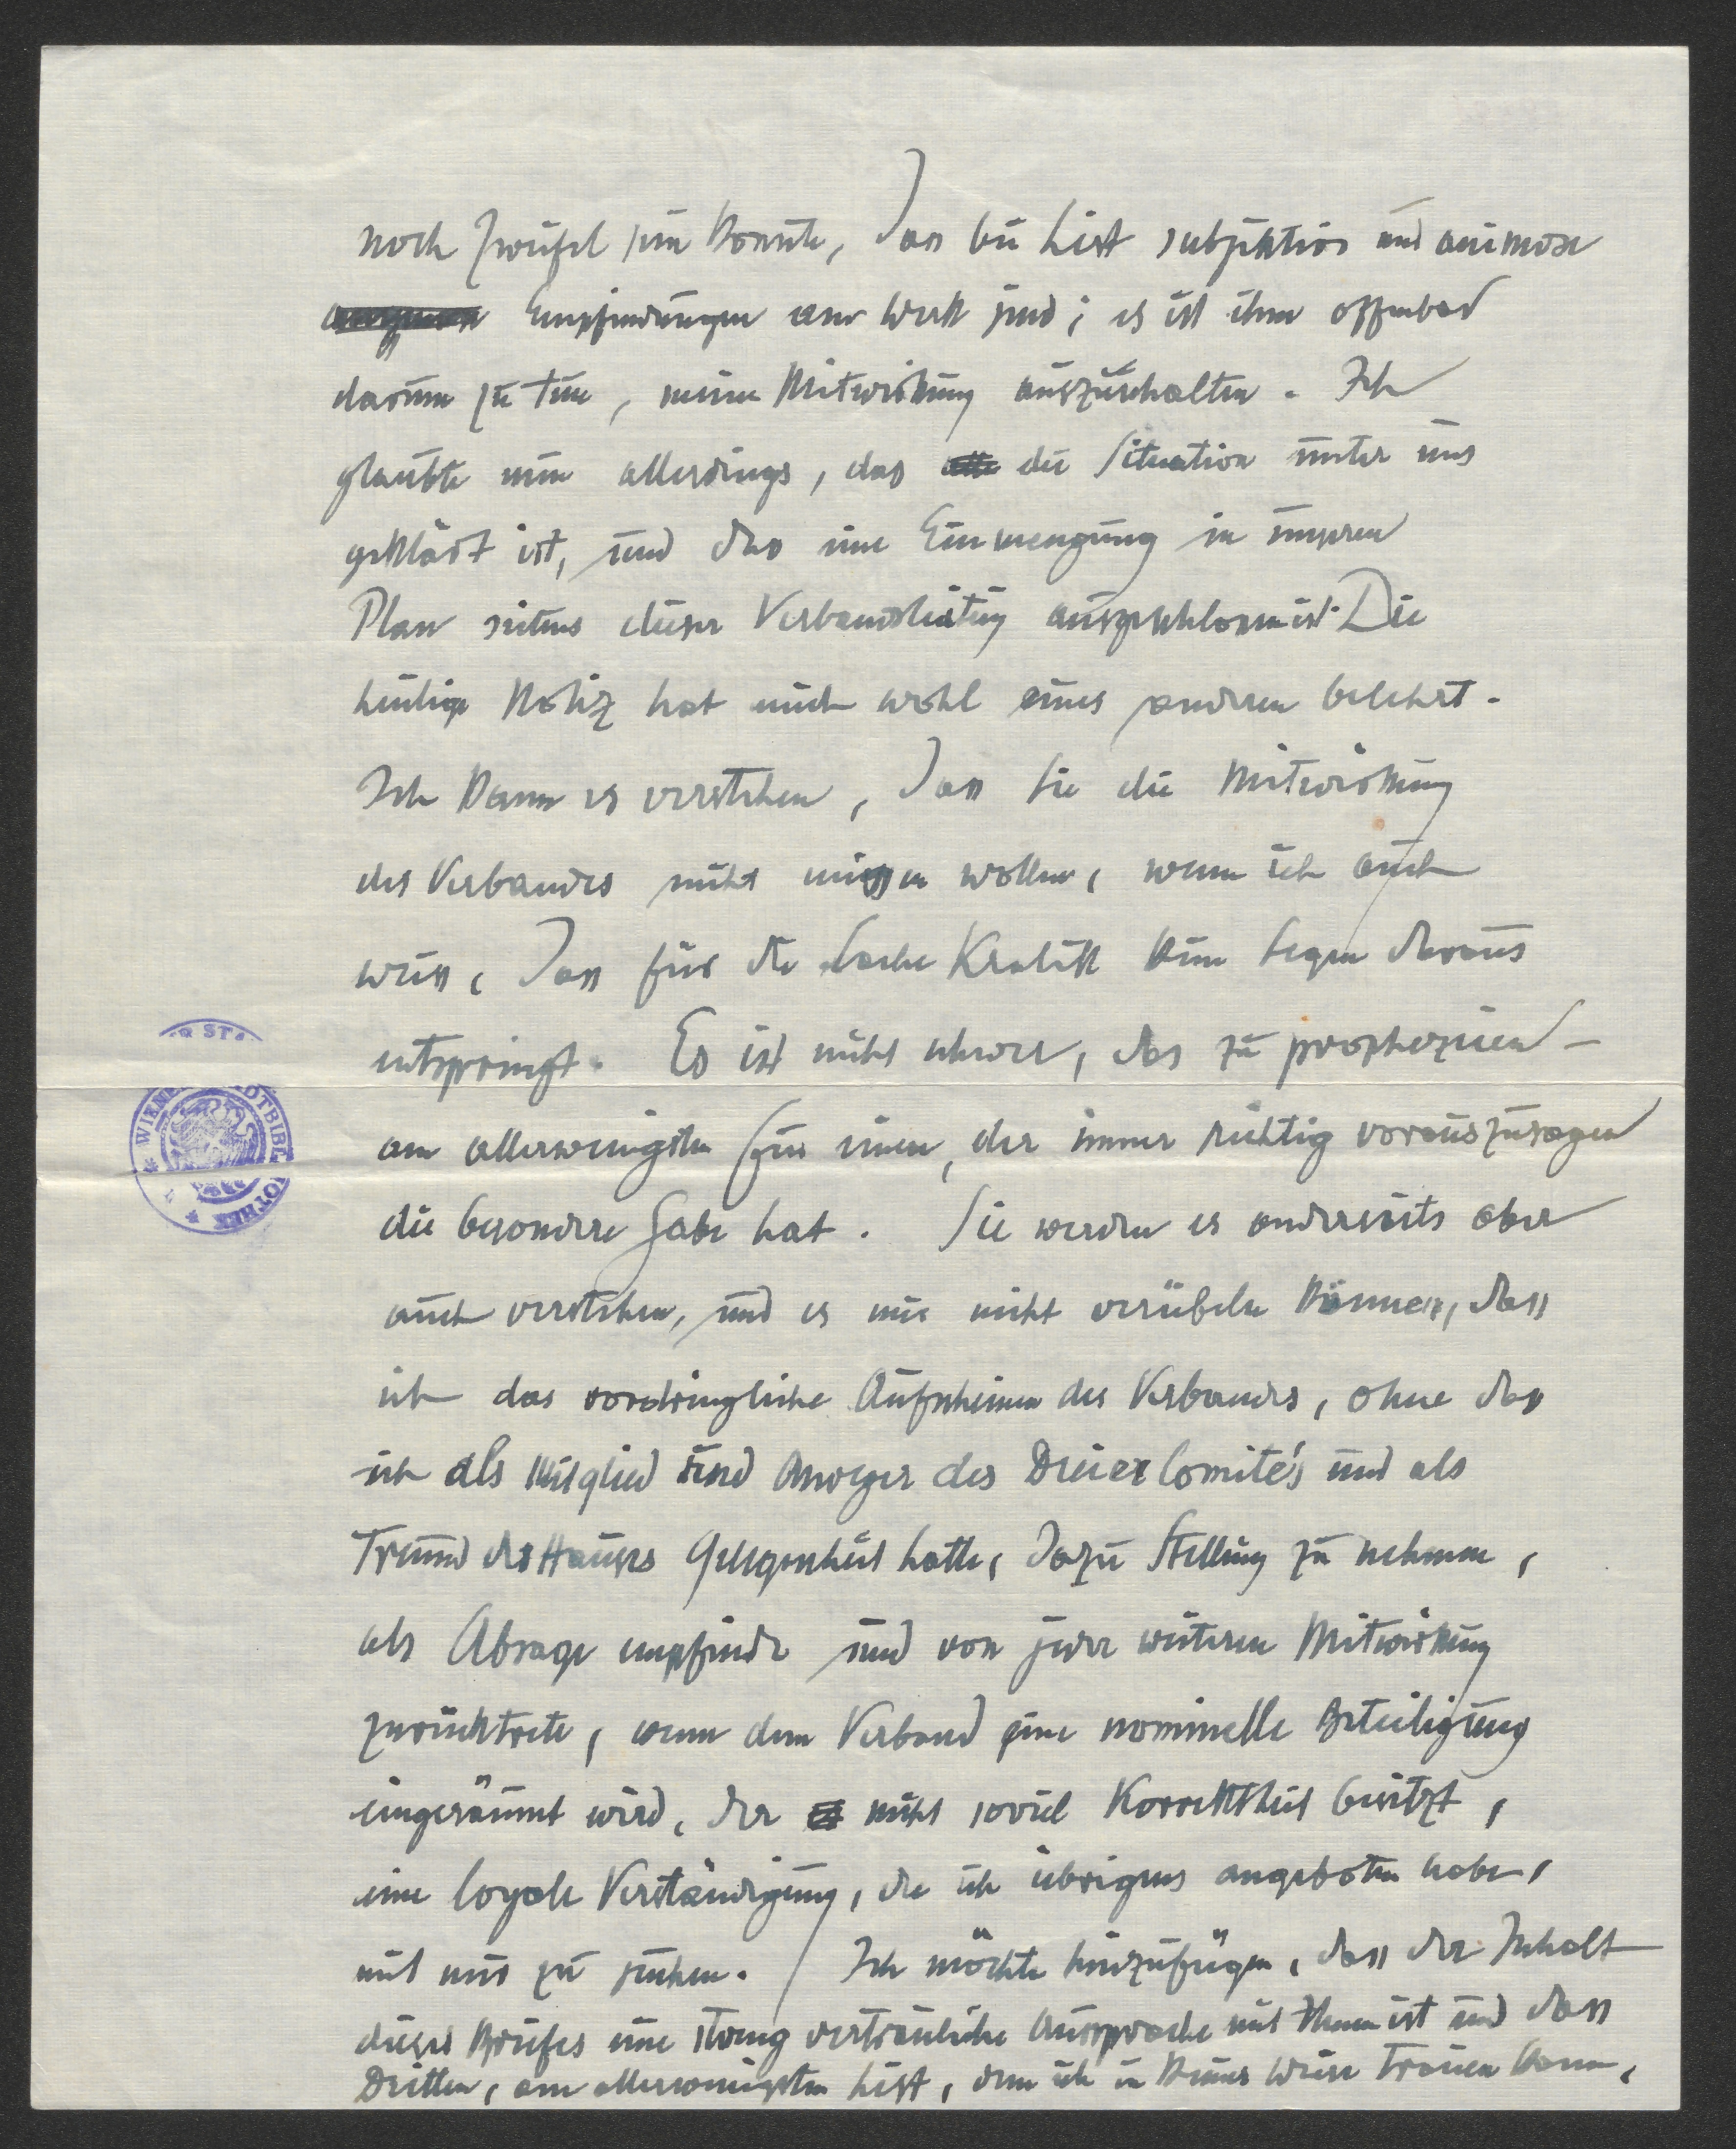 noch Zweifel sein konnte, dass bei List subjektive und animose
Empfindungen am Werk sind; es ist ihm offenbar
darum zu tun, meine Mitwirkung auszuschalten. Ich
glaubte nun allerdings, dass die Situation unter uns
geklärt ist, und dass eine Einmengung in unseren
Plan seitens dieser Verbandsleitung ausgeschlossen ist. Die
heutige Notiz hat mich wohl eines anderen belehrt.
Ich kann es verstehen, dass Sie die Mitwirkung
des Verbandes nicht missen wollen, wenn ich auch
weiss, dass für die Sache Kralik kein Segen daraus
entspringt. Es ist nicht schwer, das zu prophezeien –
am allerwenigsten für einen, der immer richtig vorauszusagen
die besondere Gabe hat. Sie werden es anderseits aber
auch verstehen, und es mir nicht verübeln können, dass
ich das vordringliche Aufscheinen des Verbandes, ohne dass
ich als Mitglied und Anreger des Dreier Comité's und als
Freund des Hauses Gelegenheit hatte, dazu Stellung zu nehmen,
als Absage empfinde und von jeder weiteren Mitwirkung
zurücktrete, wenn dem Verband eine nominelle Beteiligung
eingeräumt wird, der nicht soviel Korrektheit besitzt,
eine loyale Verständigung, die ich übrigens angeboten habe,
mit mir zu suchen. / Ich möchte hinzufügen, dass der Inhalt
dieses Briefes eine streng vertrauliche Aussprache mit Ihnen ist und dass
Dritten, am allerwenigsten List, dem ich in keiner Weise trauen kann,
WIENER STADTBIBLIOTHEK